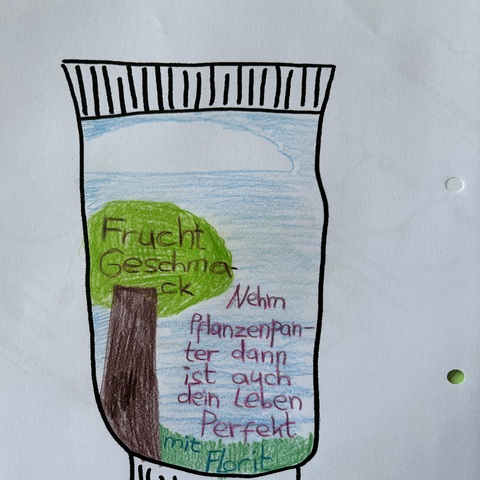 Frucht
Geschma-
ck
Nehm
Pflanzenpan-
ter dann
ist auch
dein Leben
Perfekt
mit
Florit